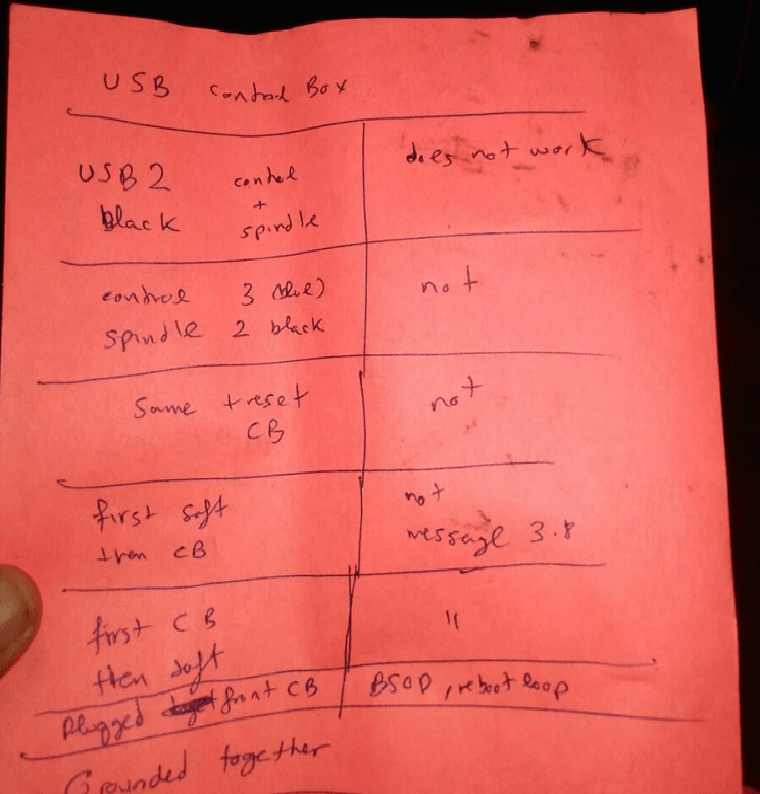 USB control Box
USB 2 control
+
black spindle
does not work
control 3 (blue)
spindle 2 black
not
Same + reset
CB
not
first soft
then CB
not
message 3.8
first CB
then soft
"
Plugged front CB
BSOD, reboot loop
Grounded together